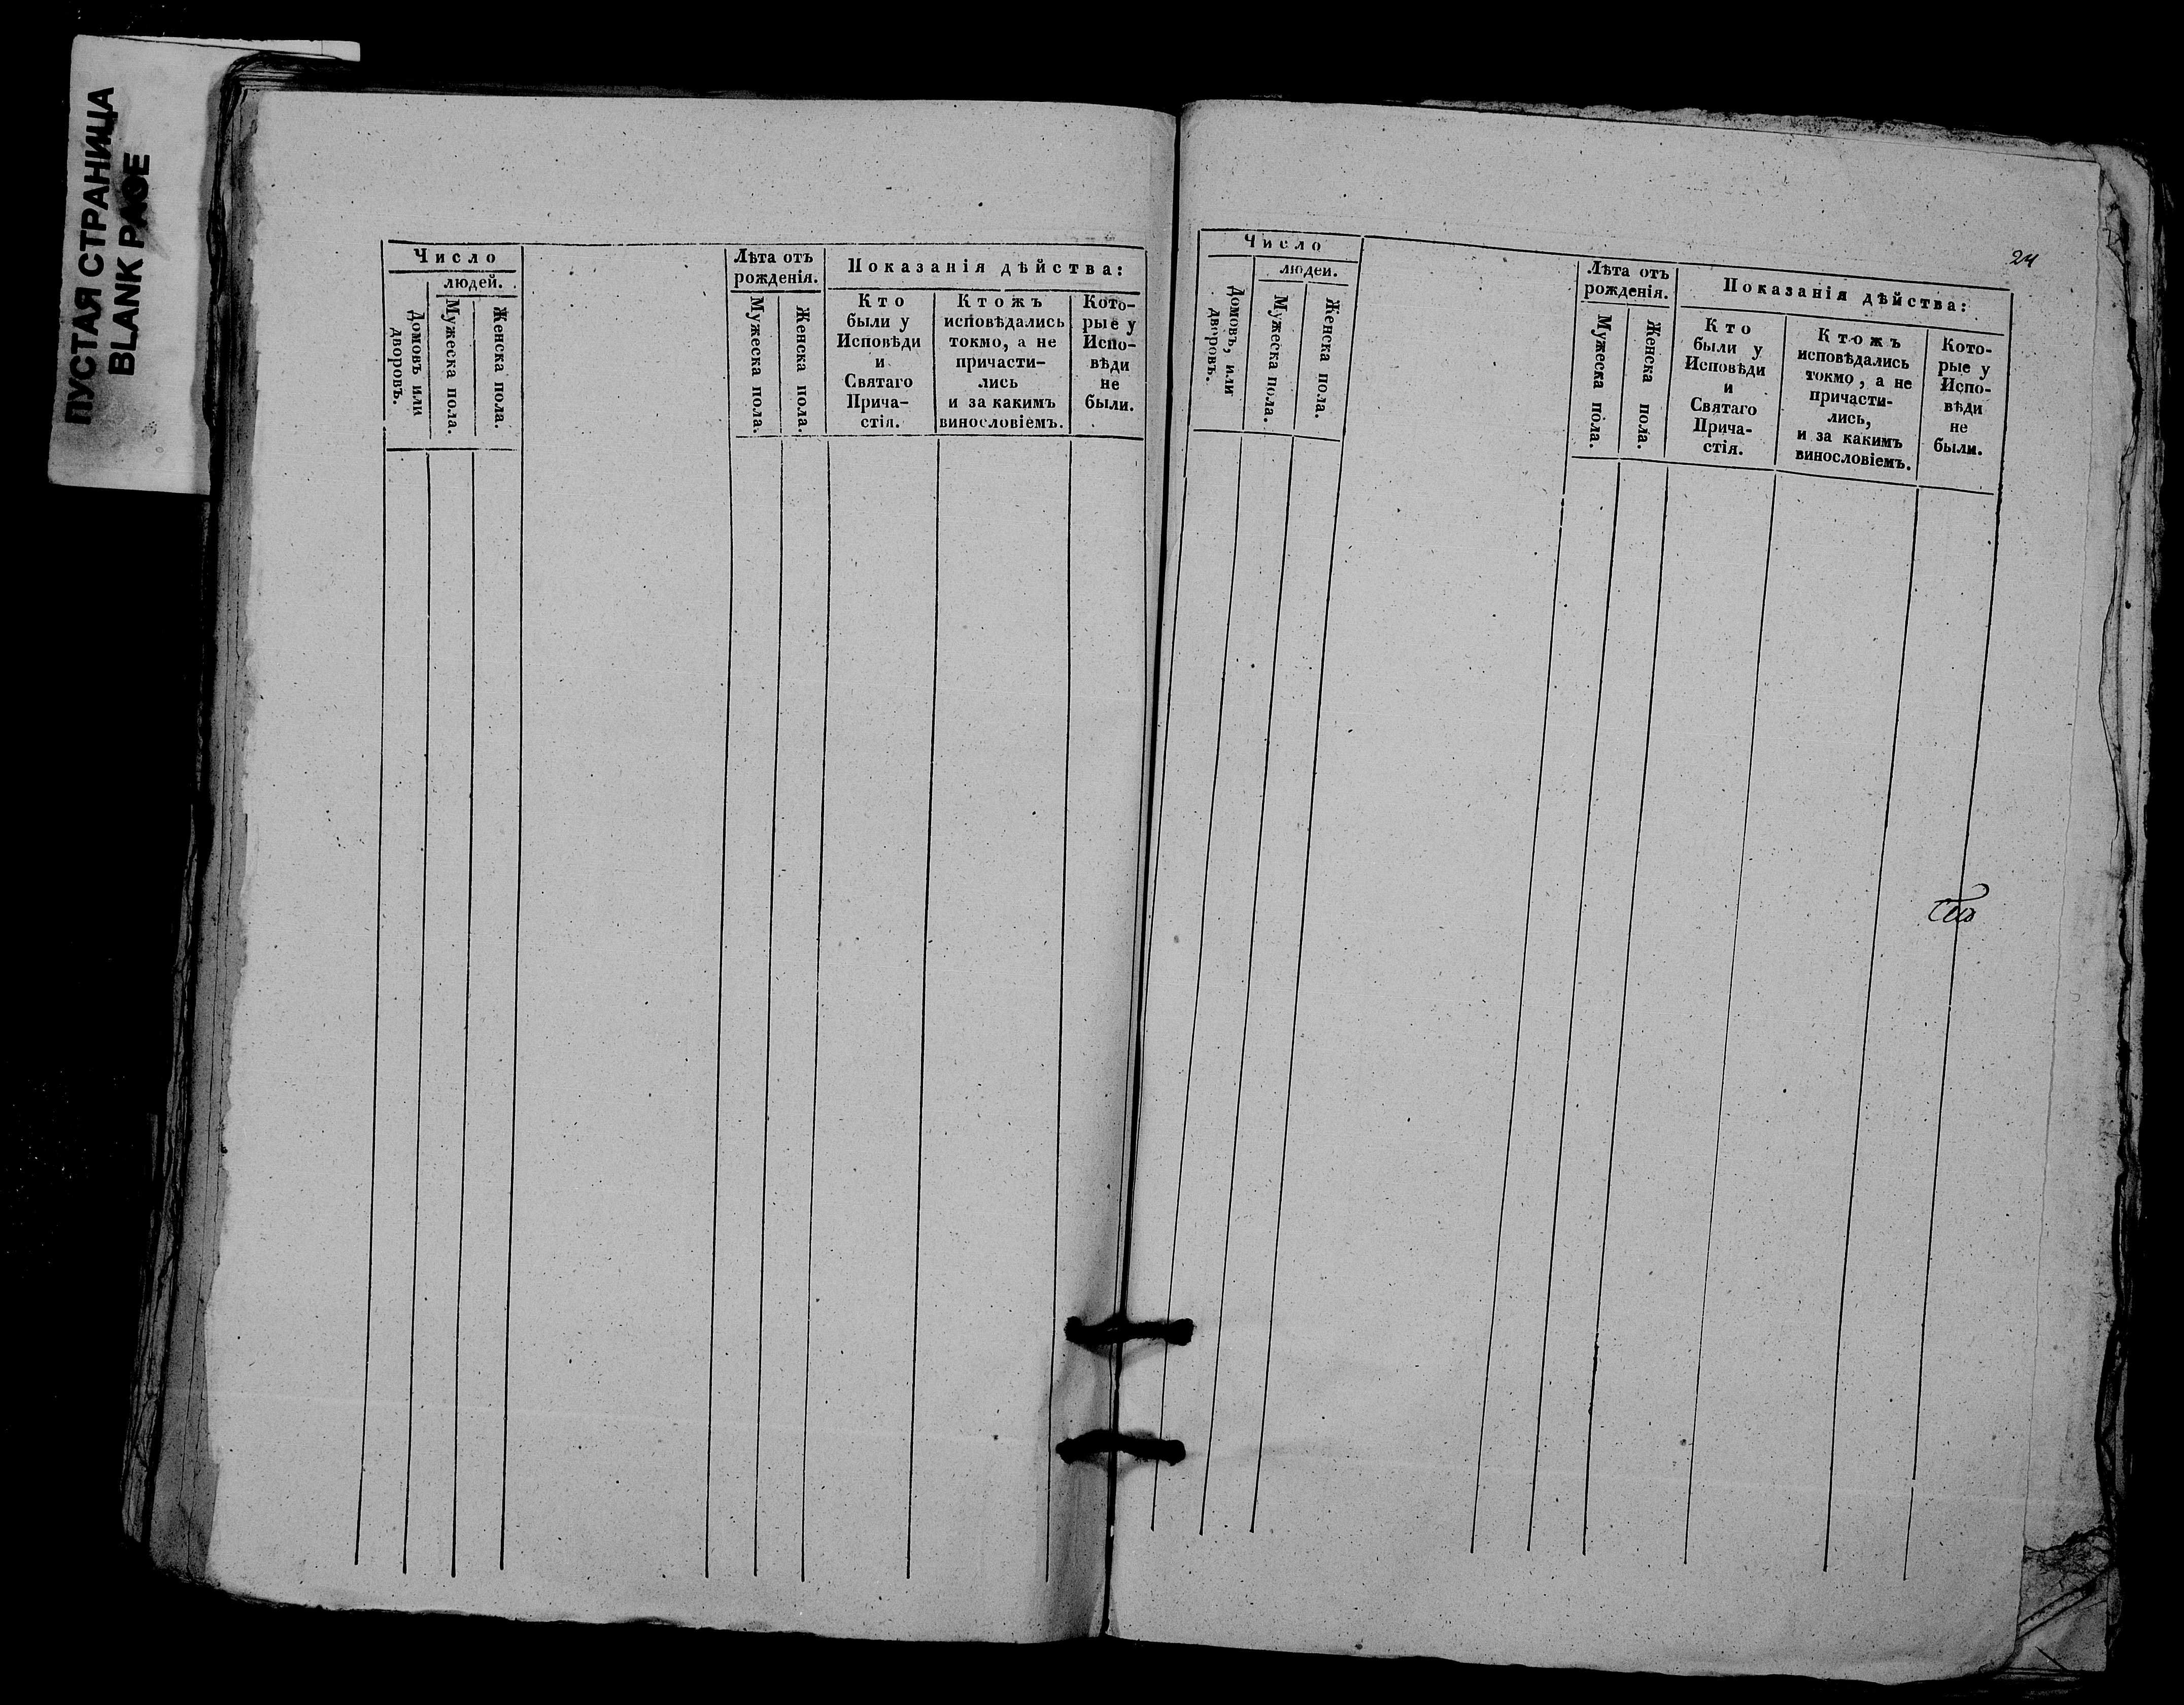 ПУСТАЯ СТРАНИЦА
BLANK PAGE
Число
людей.
Домовъ или
дворовъ.
Мужеска пола.
Женска пола.
Лѣта отъ
рожденія.
Мужеска пола.
Женска пола.
Показанія дѣйства:
Кто
были у
Исповѣди
и
Святаго
Прича-
стія.
Ктожъ
исповѣдались
токмо, а не
причасти-
лись
и за какимъ
винословіемъ.
Кото-
рые у
Испо-
вѣди
не
были.
24
Число
людей.
Домовъ, или
дворовъ.
Мужеска пола.
Женска пола.
Лѣта отъ
рожденія.
Мужеска пола.
Женска пола.
Показанія дѣйства:
Кто
были у
Исповѣди
и
Святаго
Прича-
стія.
Ктожъ
исповѣдались
токмо, а не
причасти-
лись,
и за какимъ
винословіемъ.
Кото-
рые у
Испо-
вѣди
не
были.